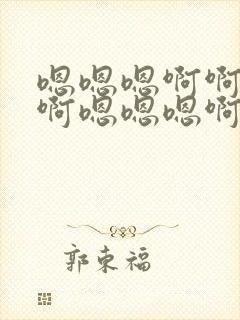 嗯嗯嗯啊啊
啊嗯嗯嗯啊
郭东福